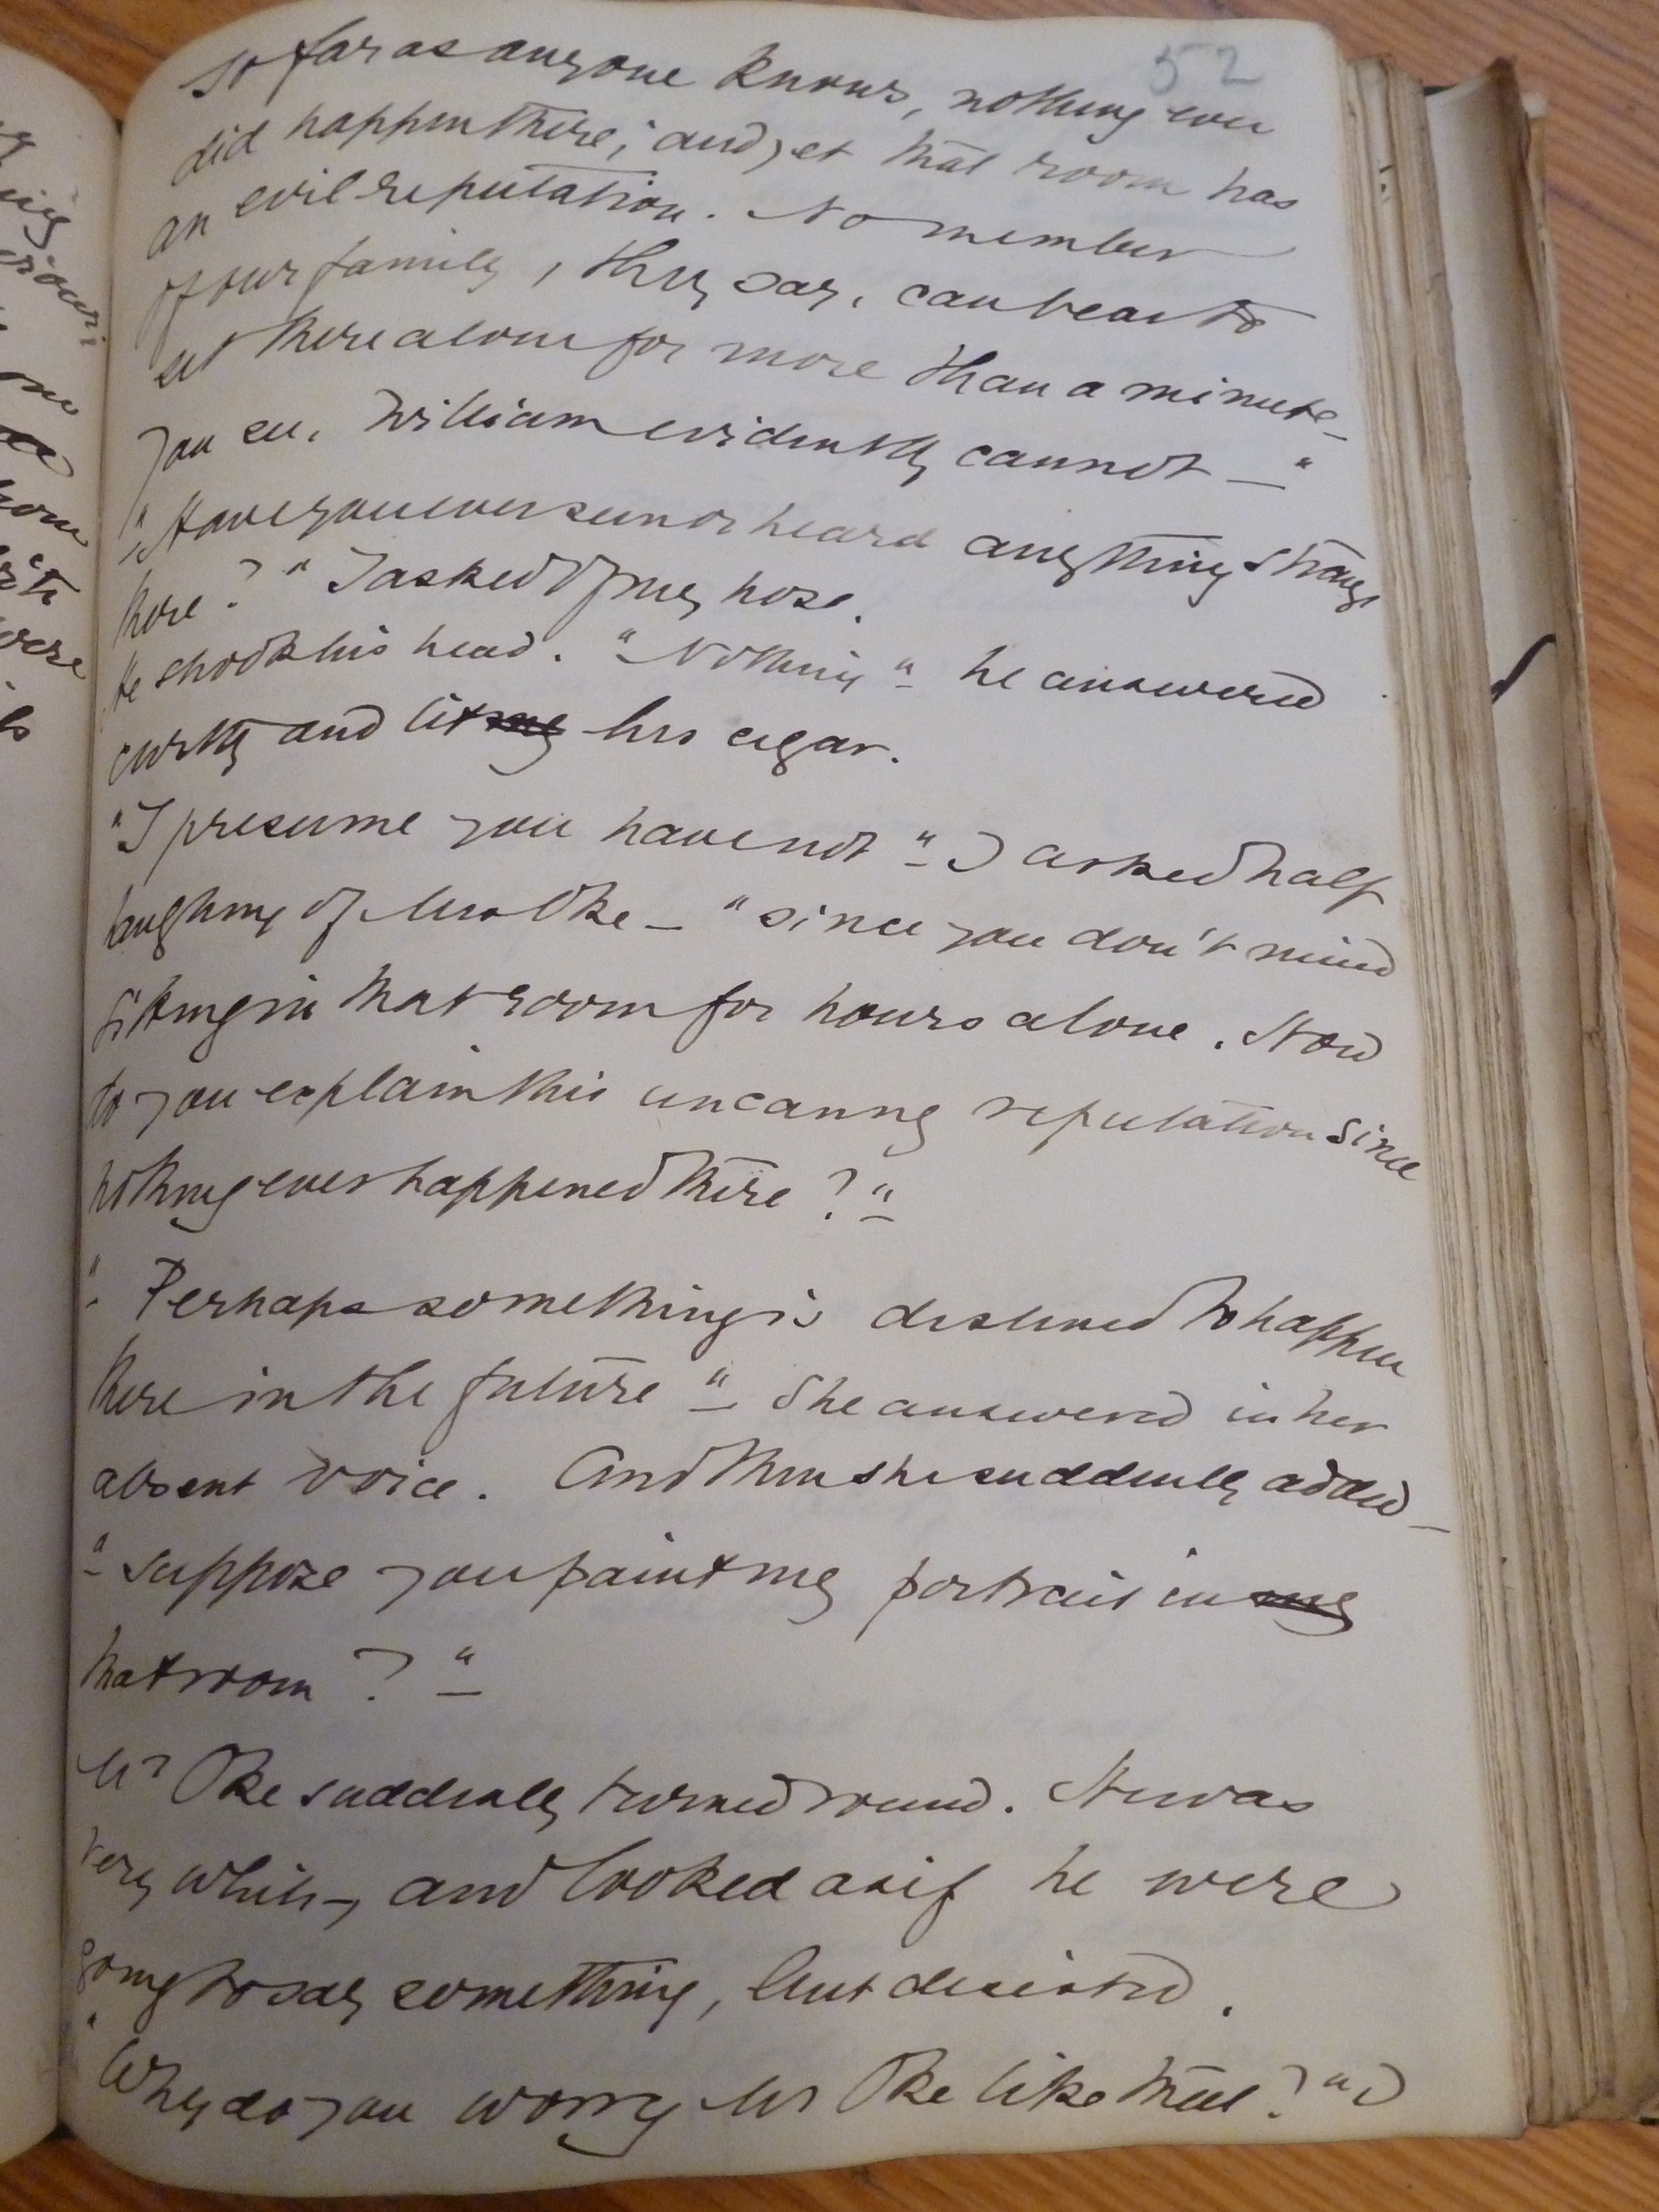 52
so far as anyone knows, nothing ever
did happen there; and yet that room has
an evil reputation. No member
of our family, they say, can bear to
sit there alone for more than a minute_
You see, William evidently cannot — "
"Have you ever seen or heard anything strange
there?" I asked of my hose.
He shook his head. "Nothing" he answered
curtly and lit his cigar.
"I presume you have not" I asked half
laughing of Mrs Oke — "since you don't mind
sitting in that room for hours alone. How
do you explain this uncanny reputation since
nothing ever happened there?"
"Perhaps something is destined to happen
there in the future" She answered in her
absent voice. And then she suddenly added_
"suppose you paint my portrait in my
that room?"
Mr Oke suddenly turned round. He was
very white, and looked as if he were
going to say something, but desisted.
"Why do you worry Mr Oke like that?" I